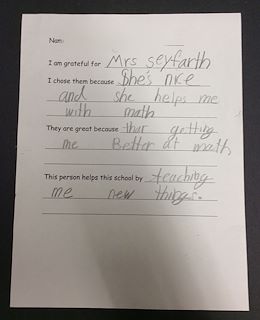 Nam
I am grateful for Mrs Seyfarth
I chose them because She's nice
and she helps me
with math
They are great because thar getting
me Better at math,
This person helps this school by teaching
me new things.